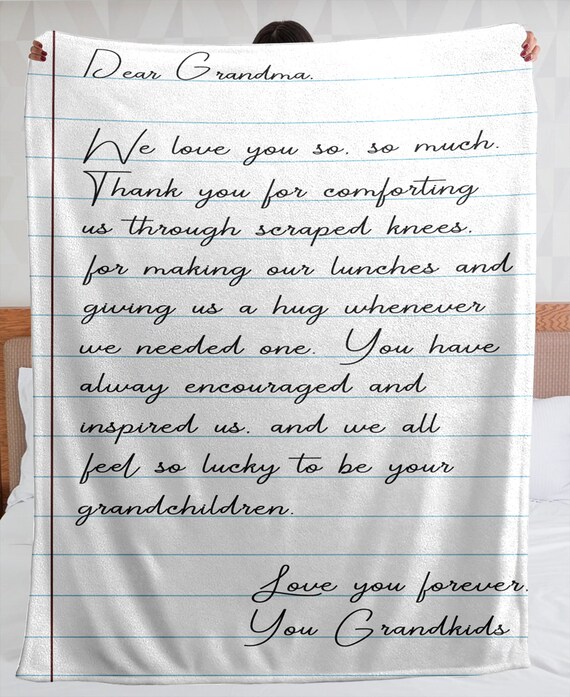 Dear Grandma.
We love you so. so much.
Thank you for comforting
us through scraped knees.
for making our lunches and
giving us a hug whenever
we needed one. You have
alway encouraged and
inspired us. and we all
feel so lucky to be your
grandchildren.
Love you forever.
You Grandkids